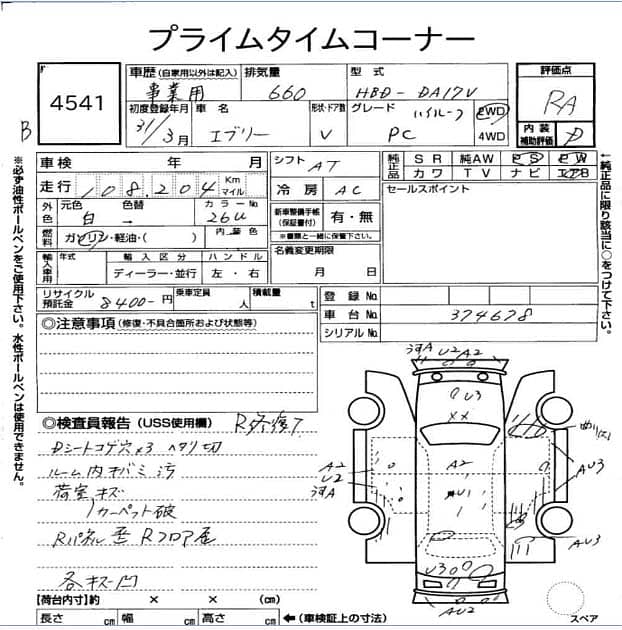 プライムタイムコーナー
4541
B
車歴(自家用以外は記入) 排気量 型式 評価点
事業用 660 HBD-DA17V RA
初度登録年月 車名 形状・ドア数 グレード
31/3月 エブリー V PC ハイルーフ 2WD 4WD
内装補助評価 D
車検 年 月 シフト AT
純正品 SR 純AW PS PW
カワ TV ナビ エアB
走行 108.204 Km マイル 冷房 AC
セールスポイント
外色 元色 色替 カラーNo
白 → 26U
新車整備手帳(保証書付) 有・無
※書類と一緒に保管下さい。
燃料 ガソリン・軽油・( ) 内装色
名義変更期限
月 日
輸入車用 年式 輸入区分 ハンドル
ディーラー・並行 左・右
リサイクル預託金 8400-円 乗車定員 人 積載量 t
登録No.
車台No. 374678
シリアルNo.
◎注意事項(修復・不具合箇所および状態等)
◎検査員報告(USS使用欄) R修復了
Dシートコゲ穴×3 ヘタリ切
ルーム内キバミ汚
荷室キズ
カーペット破
Rパネル歪 Rフロア
各キズ凹
A2
U2
A2
U3
××
A2
U2
A2
AU3
AU3
U3
AU2
【荷台内寸】約 × × (cm)
長さ cm 幅 cm 高さ cm ←(車検証上の寸法)
スペア
※必ず油性ボールペンをご使用下さい。水性ボールペンは使用できません。
←純正品に限り該当に○をつけて下さい。